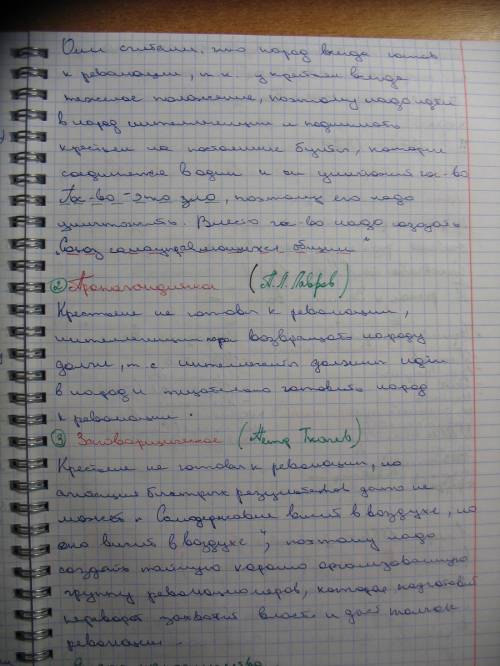 Они считали, что народ всегда готов
к революции, т.к. у крестьян всегда
тяжелое положение, поэтому надо идти
в народ интеллигенции и поднимать
крестьян на постоянные бунты, которые
соединятся в один и он уничтожит гос-во
Гос-во - это зло, поэтому его надо
уничтожить. Вместо гос-во надо создать
"Союз самоуправляющихся общин"
② Пропагандистка (П.Л. Лавров)
Крестьяне не готовы к революции,
интеллигенции пора возвращать народу
долги, т.е. интеллигенты должны идти
в народ и тщательно готовить народ
к революции.
③ Заговорщическое (Петр Ткачев)
Крестьяне не готовы к революции, но
агитация быстрых результатов дать не
может. Самодержавие висит в воздухе, но
оно висит в воздухе", поэтому надо
создать тайную хорошо организованную
группу революционеров, которая подготовит
переворот захватит власть и даст толчок
революции.